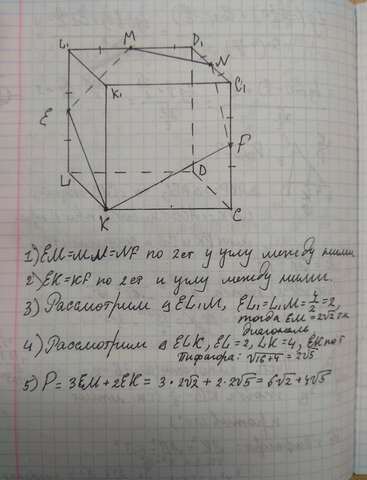 L₁ M D₁
N
K₁ C₁
E
F
L D
K C
1) EM=MN=NF по 2ст и углу между ними
2) EK=KF по 2ст и углу между ними.
3) Рассмотрим △EL₁M, EL₁=L₁M=4/2=2,
тогда EM=2√2 т.к.
диагональ
4) Рассмотрим △ELK, EL=2, LK=4, EK по т
Пифагора: √16+4=2√5
5) P=3EM+2EK=3·2√2+2·2√5=6√2+4√5